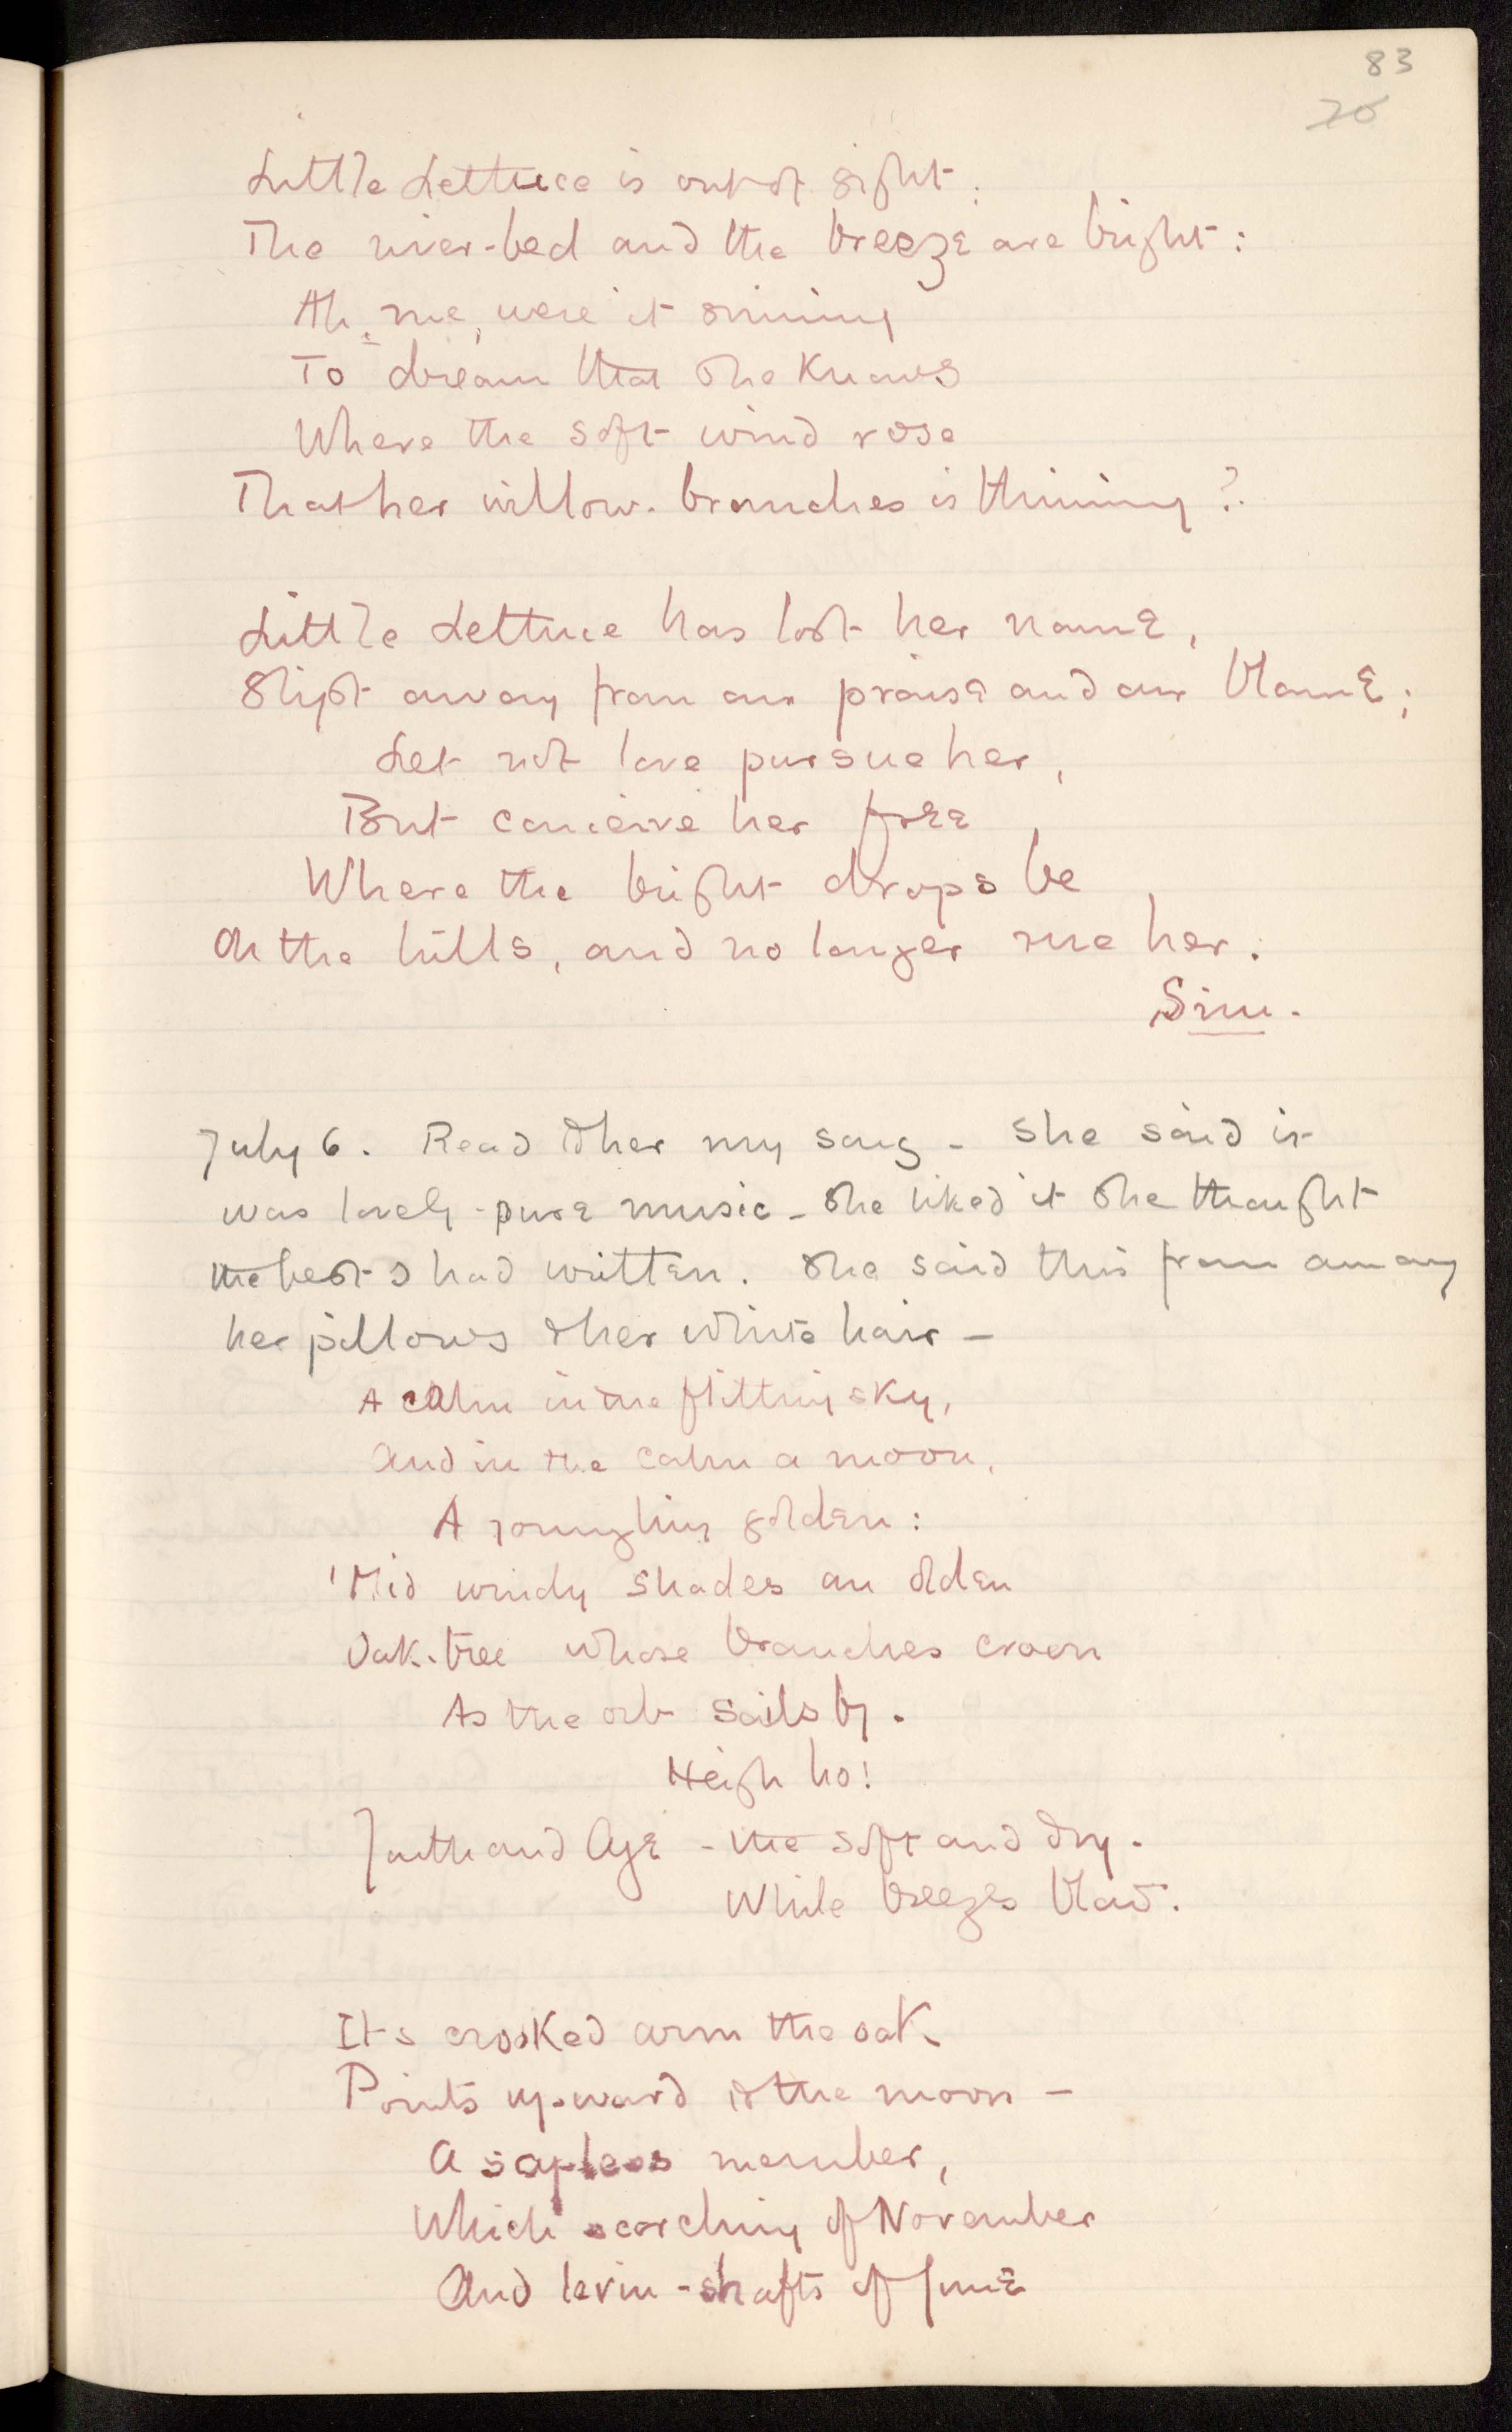 83
20
Little Lettuce is out of sight.
The river-bed and the breeze are bright:
Ah, me, were it sinning
To dream that she knows
Where the soft wind rose
That her willow-branches is thinning?
Little Lettuce has lost her name,
Slipt away from our praise and our blame;
Let not love pursue her,
But conceive her free
Where the bright drops be
On the hills, and no longer rue her.
Sim.
July 6. Read to her my song - she said it
was lovely - pure music - she liked it she thought
the best I had written. She said this from among
her pillows & her white hair -
A calm in the flitting sky,
And in the calm a moon,
A youngling golden:
'Mid windy shades an olden
Oak-tree whose branches croon
As the orb sails by.
Heigh ho!
Youth and Age - the soft and dry -
While breezes blow.
Its crooked arm the oak
Points upward to the moon -
A sapless member,
Which scorching of November
And levin-shafts of June